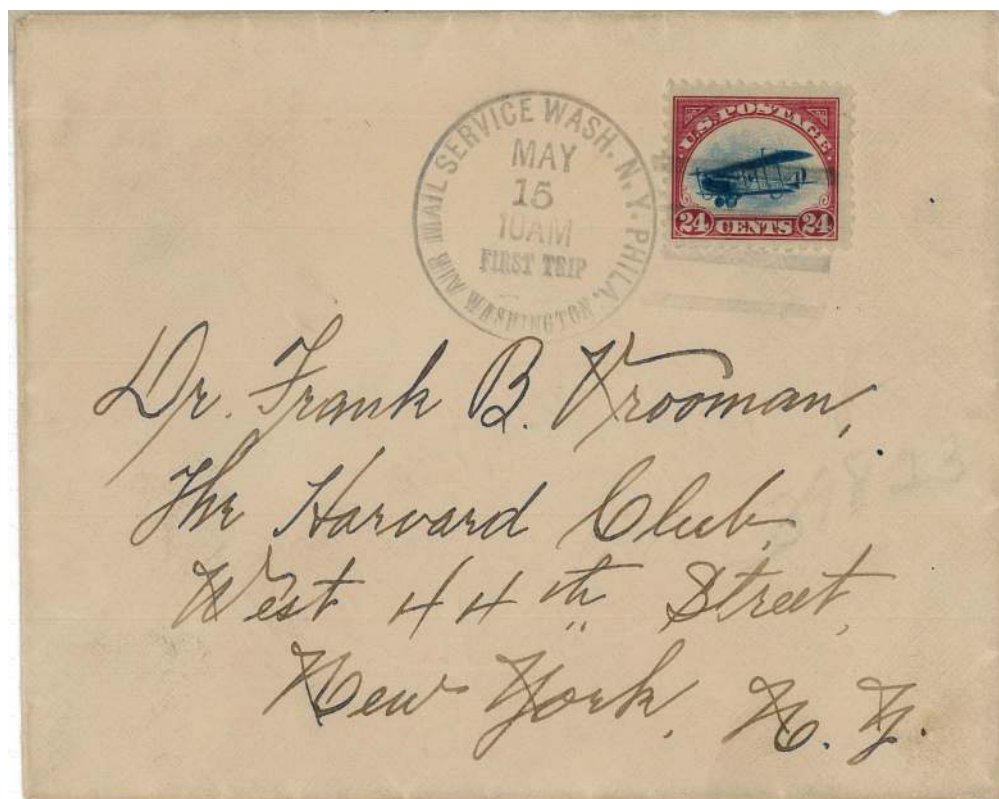 AIR MAIL SERVICE WASH. N.Y. PHILA.
MAY
15
10AM
FIRST TRIP
WASHINGTON
U.S. POSTAGE
24 CENTS 24
Dr. Frank B. Vrooman,
The Harvard Club,
West 44th Street,
New York, N. Y.